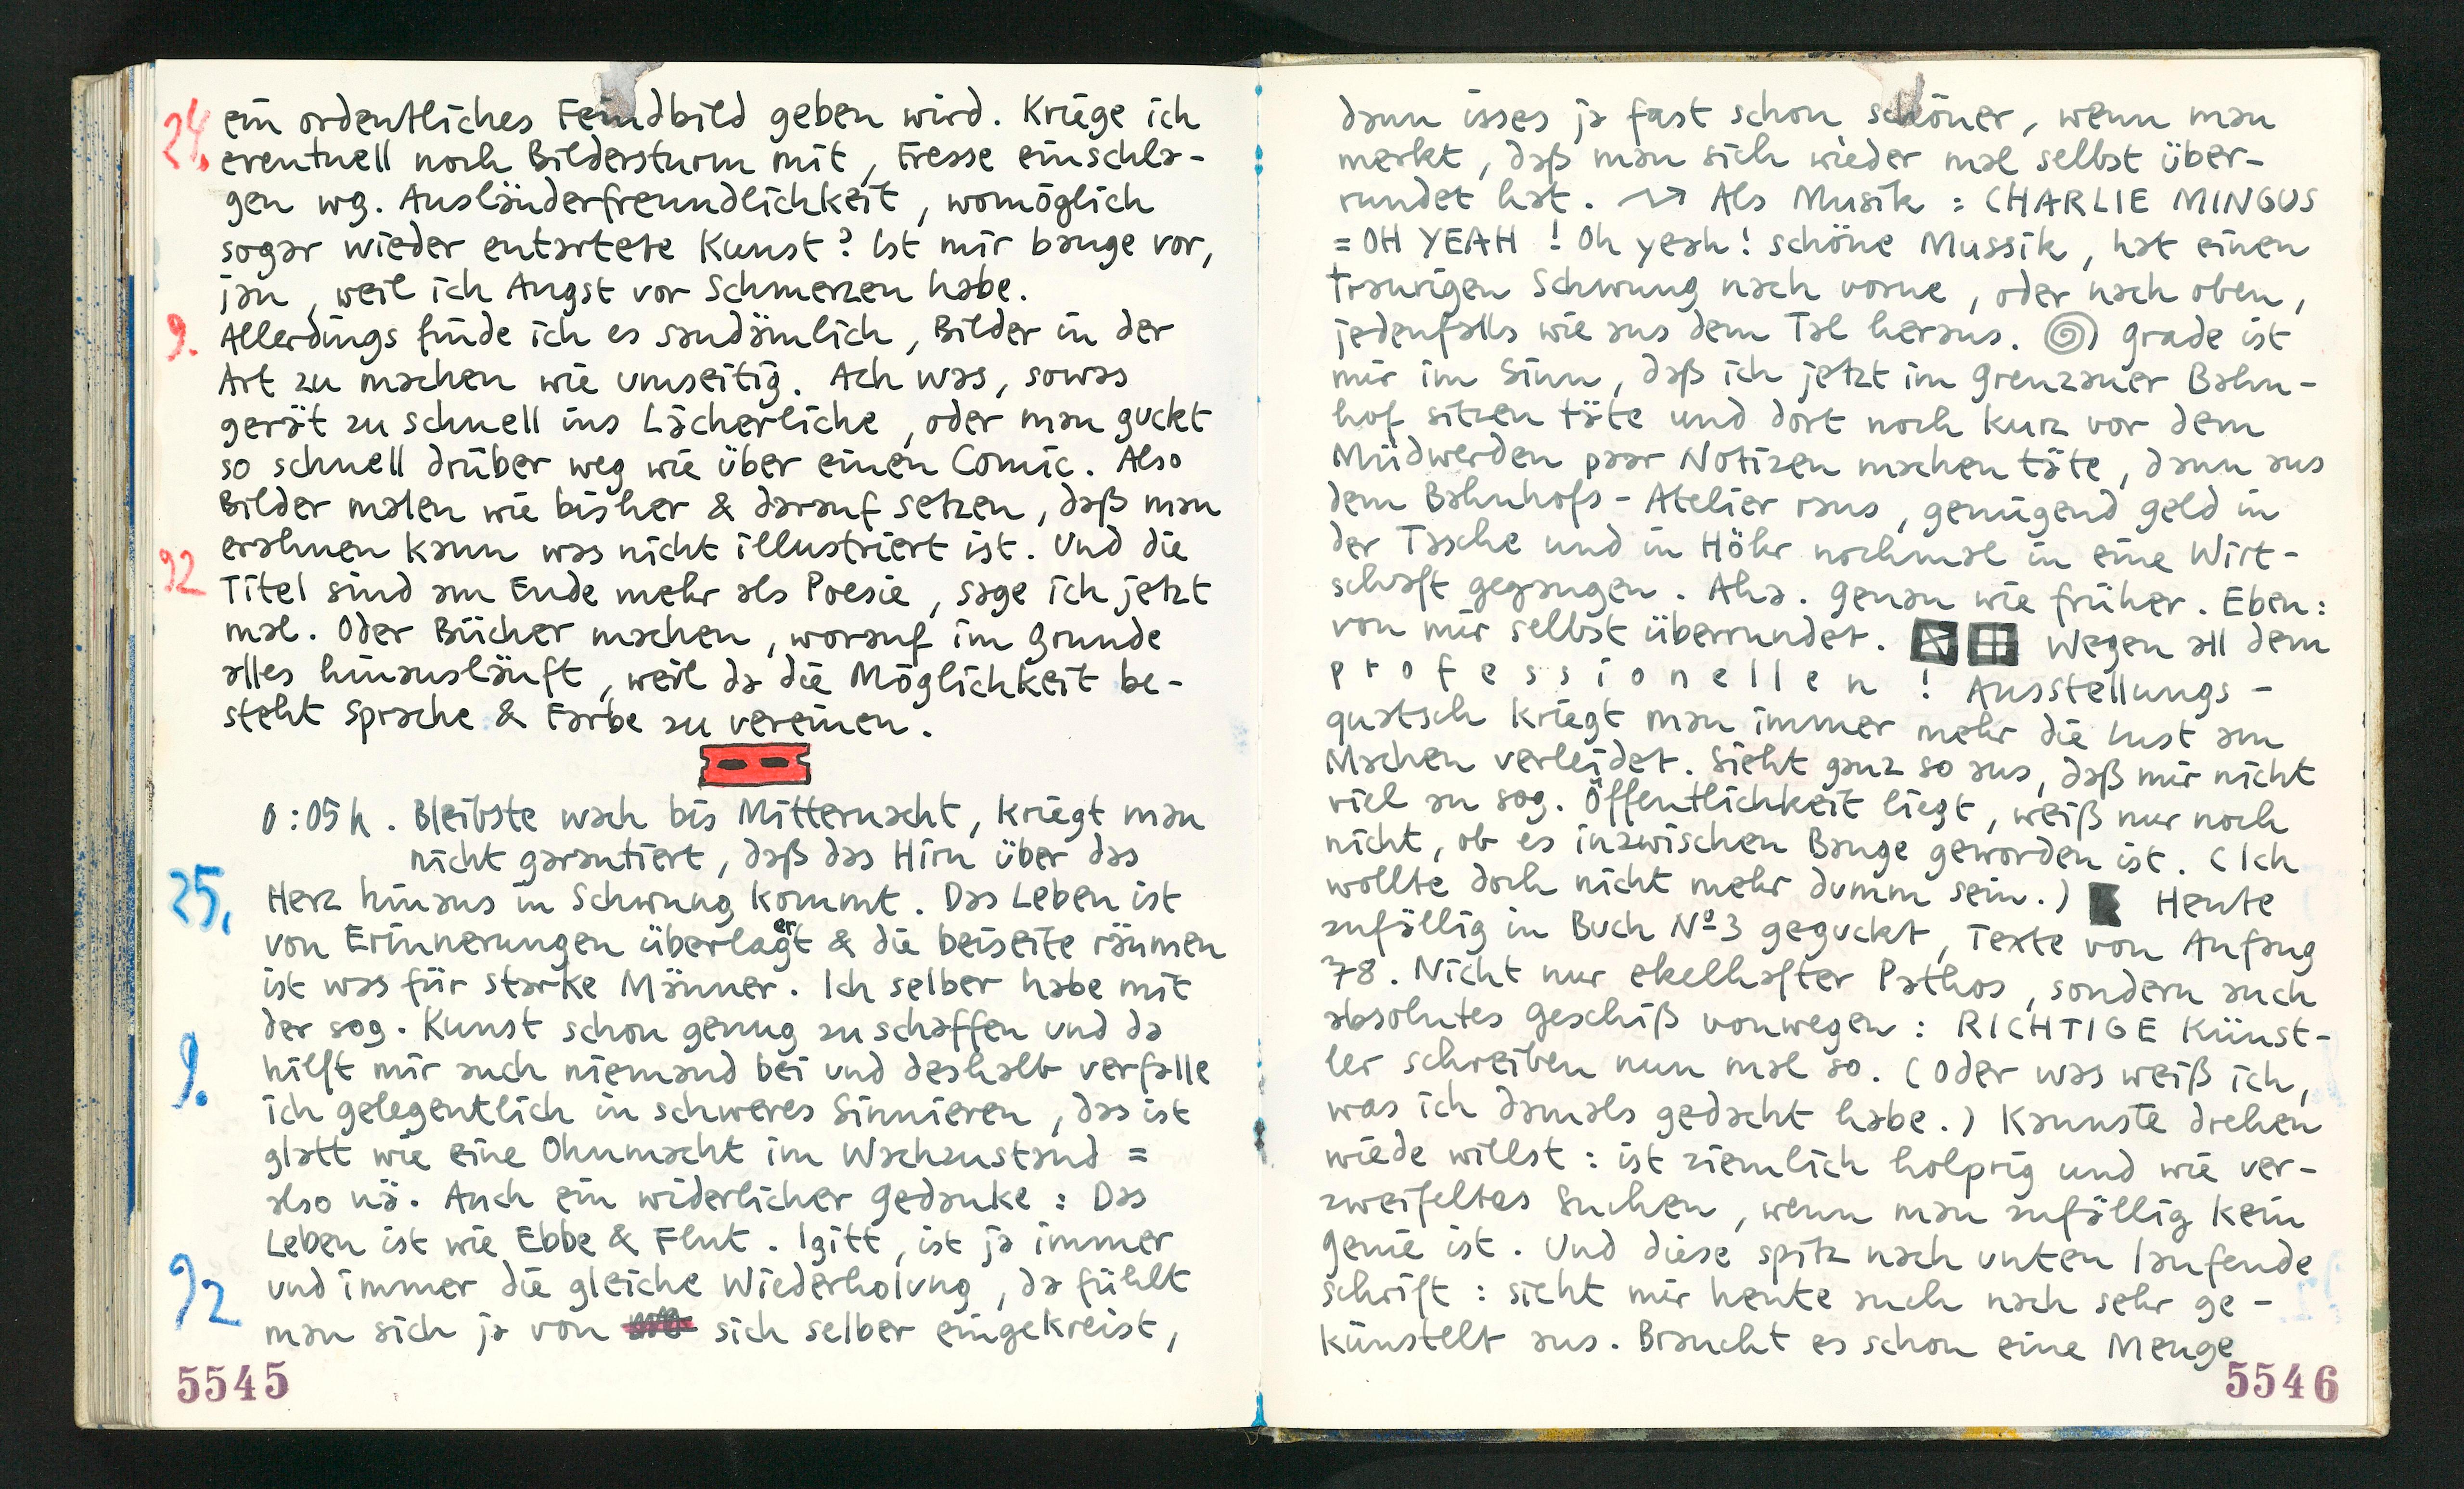 24.
ein ordentliches Feindbild geben wird. Kriege ich
eventuell noch Bildersturm mit, Fresse einschla-
gen wg. Ausländerfreundlichkeit, womöglich
sogar wieder entartete Kunst? Ist mir bange vor,
jan, weil ich Angst vor Schmerzen habe.
9.
Allerdings finde ich es saudämlich, Bilder in der
Art zu machen wie umseitig. Ach was, sowas
gerät zu schnell ins Lächerliche, oder man guckt
so schnell drüber weg wie über einen Comic. Also
Bilder malen wie bisher & darauf setzen, daß man
erahnen kann was nicht illustriert ist. Und die
92
Titel sind am Ende mehr als Poesie, sage ich jetzt
mal. Oder Bücher machen, worauf im Grunde
alles hinausläuft, weil da die Möglichkeit be-
steht Sprache & Farbe zu vereinen.
0:05 h. Bleibste wach bis Mitternacht, kriegt man
nicht garantiert, daß das Hirn über das
25.
Herz hinaus in Schwung kommt. Das Leben ist
von Erinnerungen überlagert & die beiseite räumen
ist was für starke Männer. Ich selber habe mit
der sog. Kunst schon genug zu schaffen und da
9.
hilft mir auch niemand bei und deshalb verfalle
ich gelegentlich in schweres Sinnieren, das ist
glatt wie eine Ohnmacht im Wachzustand =
also nä. Auch ein widerlicher Gedanke: Das
Leben ist wie Ebbe & Flut. Igitt, ist ja immer
92
und immer die gleiche Wiederholung, da fühlt
man sich ja von sich selber eingekreist,
5545
dann isses ja fast schon schöner, wenn man
merkt, daß man sich wieder mal selbst über-
rundet hat. Als Musik: CHARLIE MINGUS
= OH YEAH! Oh yeah! schöne Mussik, hat einen
traurigen Schwung nach vorne, oder nach oben,
jedenfalls wie aus dem Tal heraus. Grade ist
mir im Sinn, daß ich jetzt im Grenzauer Bahn-
hof sitzen täte und dort noch kurz vor dem
Müdwerden paar Notizen machen täte, dann aus
dem Bahnhofs-Atelier raus, genügend Geld in
der Tasche und in Höhr nochmal in eine Wirt-
schaft gegangen. Aha. Genau wie früher. Eben:
von mir selbst überrundet. Wegen all dem
professionellen! Ausstellungs-
quatsch kriegt man immer mehr die Lust am
Machen verleidet. Sieht ganz so aus, daß mir nicht
viel an sog. Öffentlichkeit liegt, weiß nur noch
nicht, ob es inzwischen Bange geworden ist. (Ich
wollte doch nicht mehr dumm sein.) Heute
zufällig in Buch Nº 3 geguckt, Texte von Anfang
78. Nicht nur ekelhafter Pathos, sondern auch
absolutes Geschiß vonwegen: RICHTIGE Künst-
ler schreiben nun mal so. (Oder was weiß ich,
was ich damals gedacht habe.) Kannste drehen
wiede willst: ist ziemlich holprig und wie ver-
zweifeltes Suchen, wenn man zufällig kein
Genie ist. Und diese spitz nach unten laufende
Schrift: sieht mir heute auch nach sehr ge-
künstelt aus. Braucht es schon eine Menge
5546